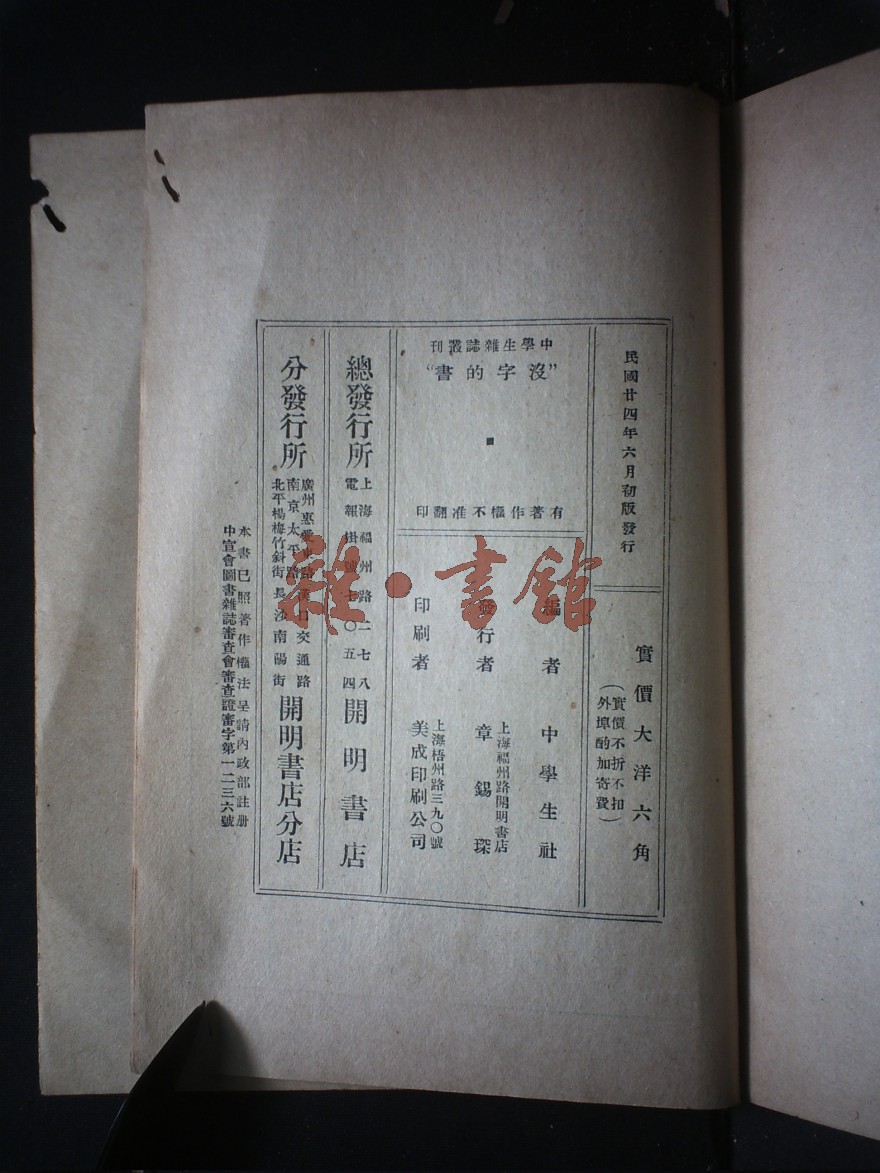 民國廿四年六月初版發行
實價大洋六角
（實價不折不扣
外埠酌加寄費）
中學生雜誌叢刊
“沒字的書”
有著作權不准翻印
編者 中學生社
發行者 上海福州路開明書店
章錫琛
印刷者 上海梧州路三九〇號
美成印刷公司
總發行所 上海福州路二七八
電報掛號七〇五四
開明書店
分發行所 廣州惠愛東路 漢口交通路
南京太平路
北平楊梅竹斜街 長沙南陽街
開明書店分店
本書已照著作權法呈請內政部註册
中宣會圖書雜誌審查會審查證審字第一二三六號
雜·書館